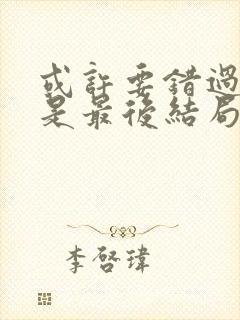 或許要錯過
是最後結局
李啓瑋